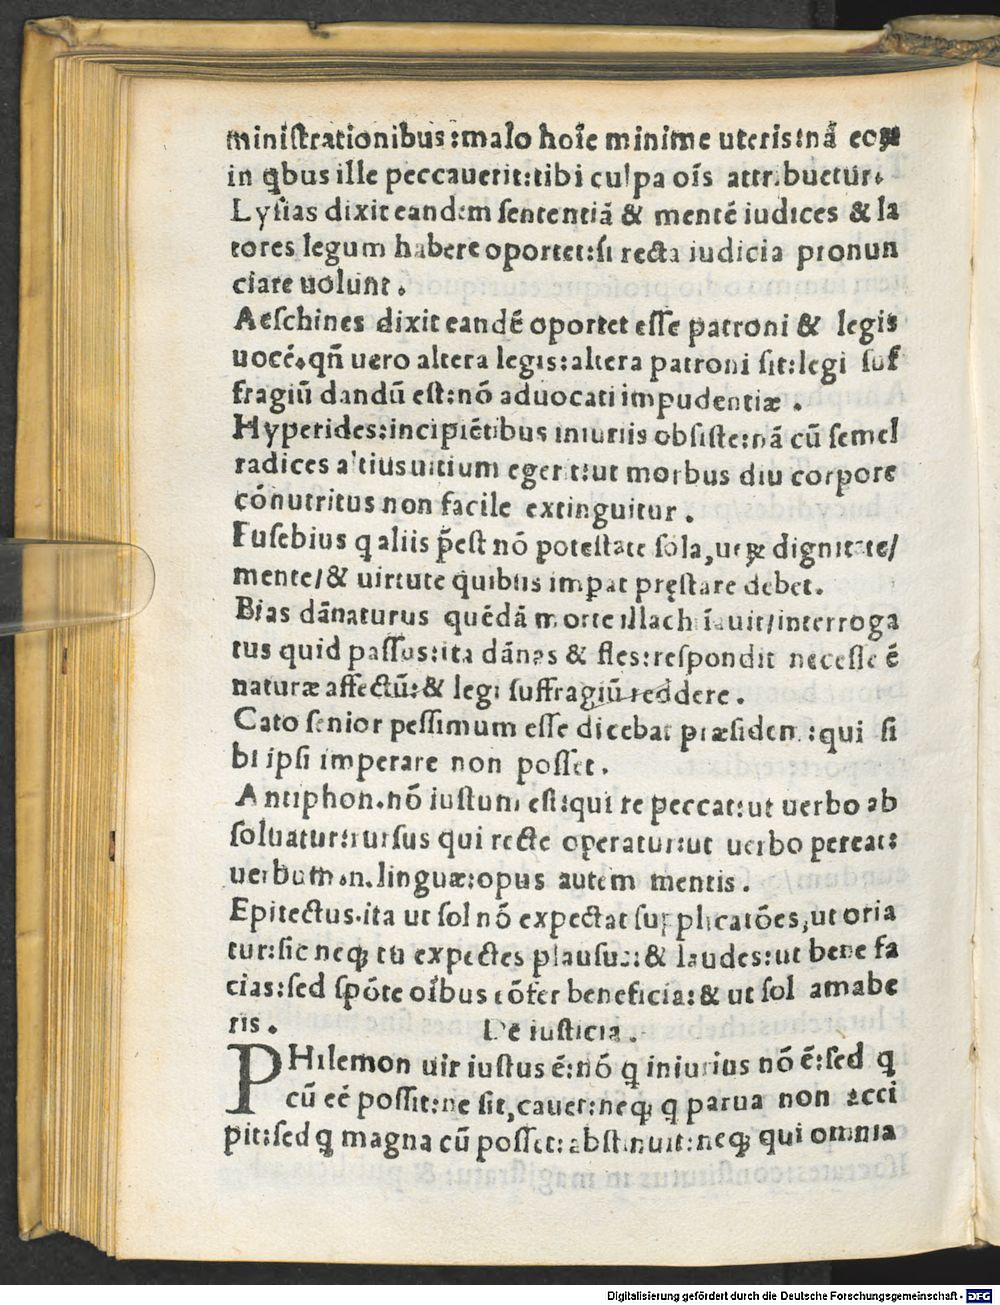 miniſtrationibus:malo hoīe minime uteris:nā eoꝝ
in qbus ille peccauerit:tibi culpa oīs attribuetur.
Lyſias dixit eandem ſententiā & mentē iudices & la
tores legum habere oportet:ſi recta iudicia pronun
ciare uolunt.
Aeſchines dixit eandē oportet eſſe patroni & legis
uocē.qñ uero altera legis:altera patroni ſit:legi ſuf
fragiū dandū eſt:nō aduocati impudentiæ.
Hyperides:incipiētibus iniuriis obſiſte:nā cū ſemel
radices altius uitium egerit:ut morbus diu corpore
cōnutritus non facile extinguitur.
Euſebius q aliis p̄eſt nō poteſtate ſola,ueꝝ dignitate/
mente/& uirtute quibus impat pręſtare debet.
Bias dānaturus quēdā morte illachīauit/interroga
tus quid paſſus:ita dānas & fles:reſpondit neceſſe ē
naturæ affectū:& legi ſuffragiū reddere.
Cato ſenior peſſimum eſſe dicebat præſidem:qui ſi
bi ipſi imperare non poſſet.
Antiphon.nō iuſtum eſt:qui re peccat:ut uerbo ab
ſoluatur:rurſus qui recte operatur:ut uerbo pereat:
uerbum .n.linguæ:opus autem mentis.
Epitectus.ita ut ſol nō expectat ſupplicatōes,ut oria
tur:ſic neqꝫ tu expectes plauſus:& laudes:ut bene fa
cias:ſed ſpōte oībus cōfer beneficia:& ut ſol amabe
ris. De iuſticia.
PHilemon uir iuſtus ē:nō q iniurius nō ē:ſed q
cū eē poſſit:ne ſit,cauet:neqꝫ q parua non acci
pit:ſed q magna cū poſſet:abſtinuit:neqꝫ qui omnia
Digitalisierung gefördert durch die Deutsche Forschungsgemeinschaft - DFG